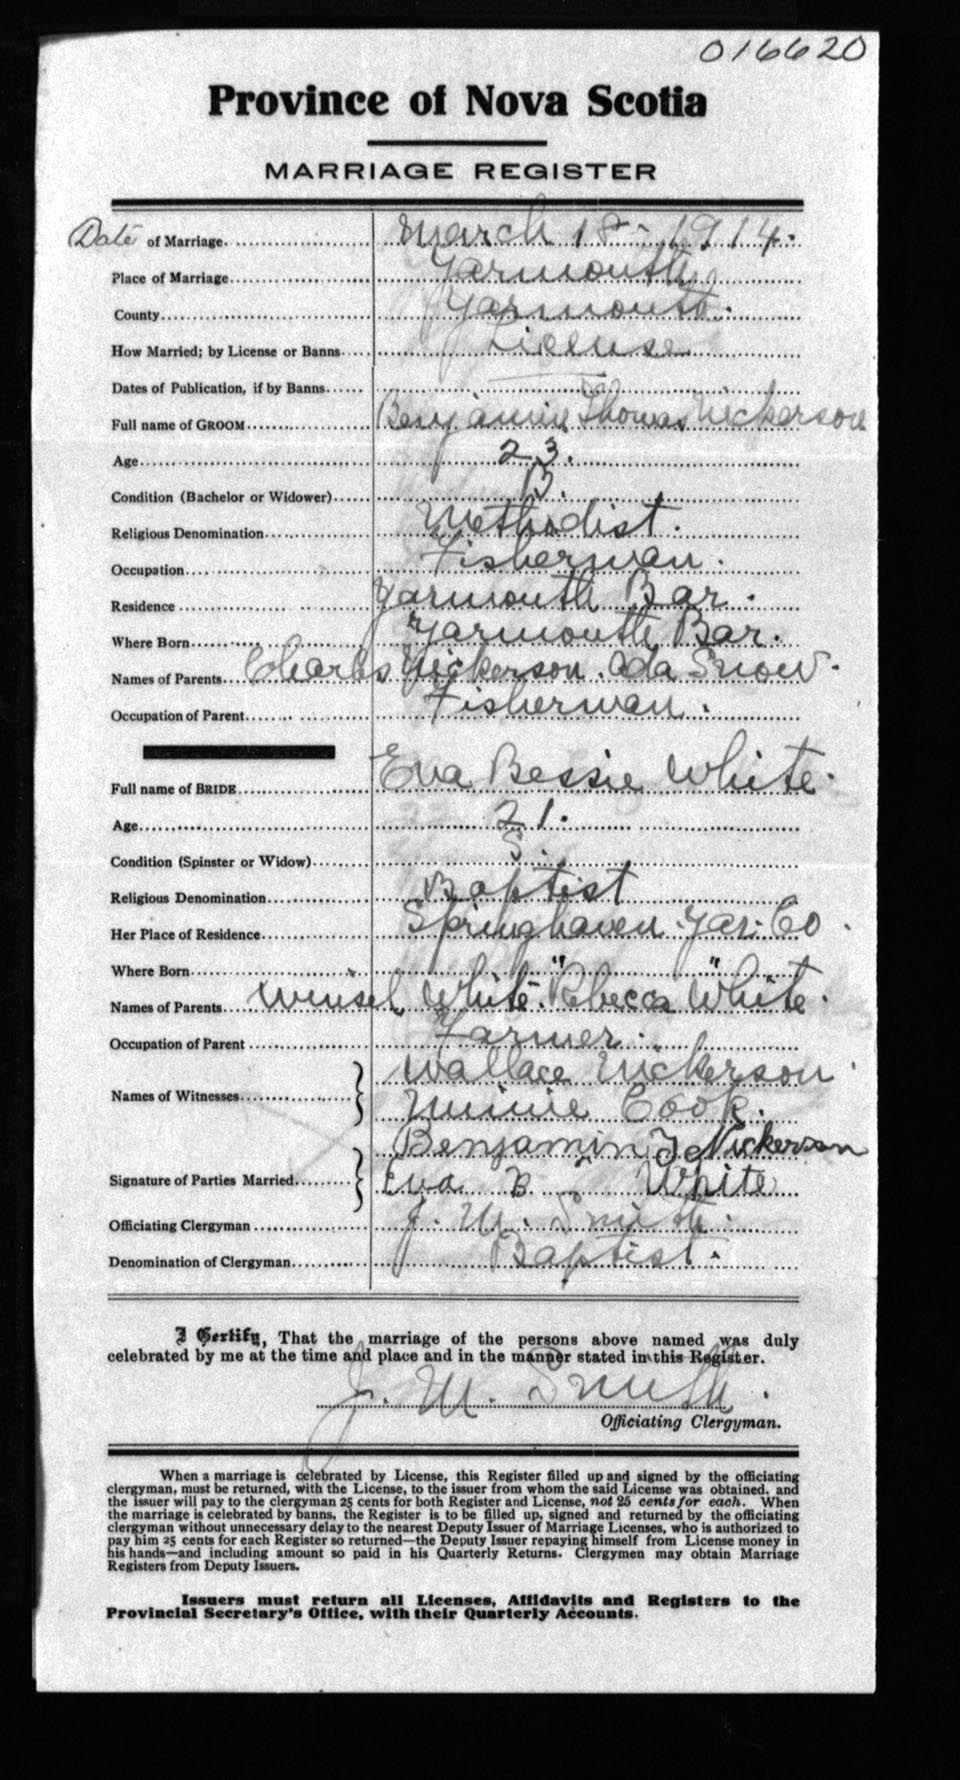 016620
Province of Nova Scotia
MARRIAGE REGISTER
Date of Marriage March 18 - 1914.
Place of Marriage Yarmouth
County Yarmouth.
How Married; by License or Banns License
Dates of Publication, if by Banns
Full name of GROOM Benjamin Thomas Nickerson
Age 23.
Condition (Bachelor or Widower) B.
Religious Denomination Methodist.
Occupation Fisherman.
Residence Yarmouth Bar.
Where Born Yarmouth Bar.
Names of Parents Charles Nickerson. Ada Snow.
Occupation of Parent Fisherman.
Full name of BRIDE Eva Bessie White.
Age 21.
Condition (Spinster or Widow) S.
Religious Denomination Baptist
Her Place of Residence Springhaven Yar. Co.
Where Born " "
Names of Parents White. Rebecca White.
Occupation of Parent Farmer.
Names of Witnesses Wallace Nickerson.
Minnie Cook.
Signature of Parties Married Benjamin T Nickerson
Eva B. White
Officiating Clergyman J. M. Smith.
Denomination of Clergyman Baptist.
I Certify, That the marriage of the persons above named was duly
celebrated by me at the time and place and in the manner stated in this Register.
J. M. Smith.
Officiating Clergyman.
When a marriage is celebrated by License, this Register filled up and signed by the officiating
clergyman, must be returned, with the License, to the issuer from whom the said License was obtained, and
the issuer will pay to the clergyman 25 cents for both Register and License, not 25 cents for each. When
the marriage is celebrated by banns, the Register is to be filled up, signed and returned by the officiating
clergyman without unnecessary delay to the nearest Deputy Issuer of Marriage Licenses, who is authorized to
pay him 25 cents for each Register so returned—the Deputy Issuer repaying himself from License money in
his hands—and including amount so paid in his Quarterly Returns. Clergymen may obtain Marriage
Registers from Deputy Issuers.
Issuers must return all Licenses, Affidavits and Registers to the
Provincial Secretary's Office, with their Quarterly Accounts.